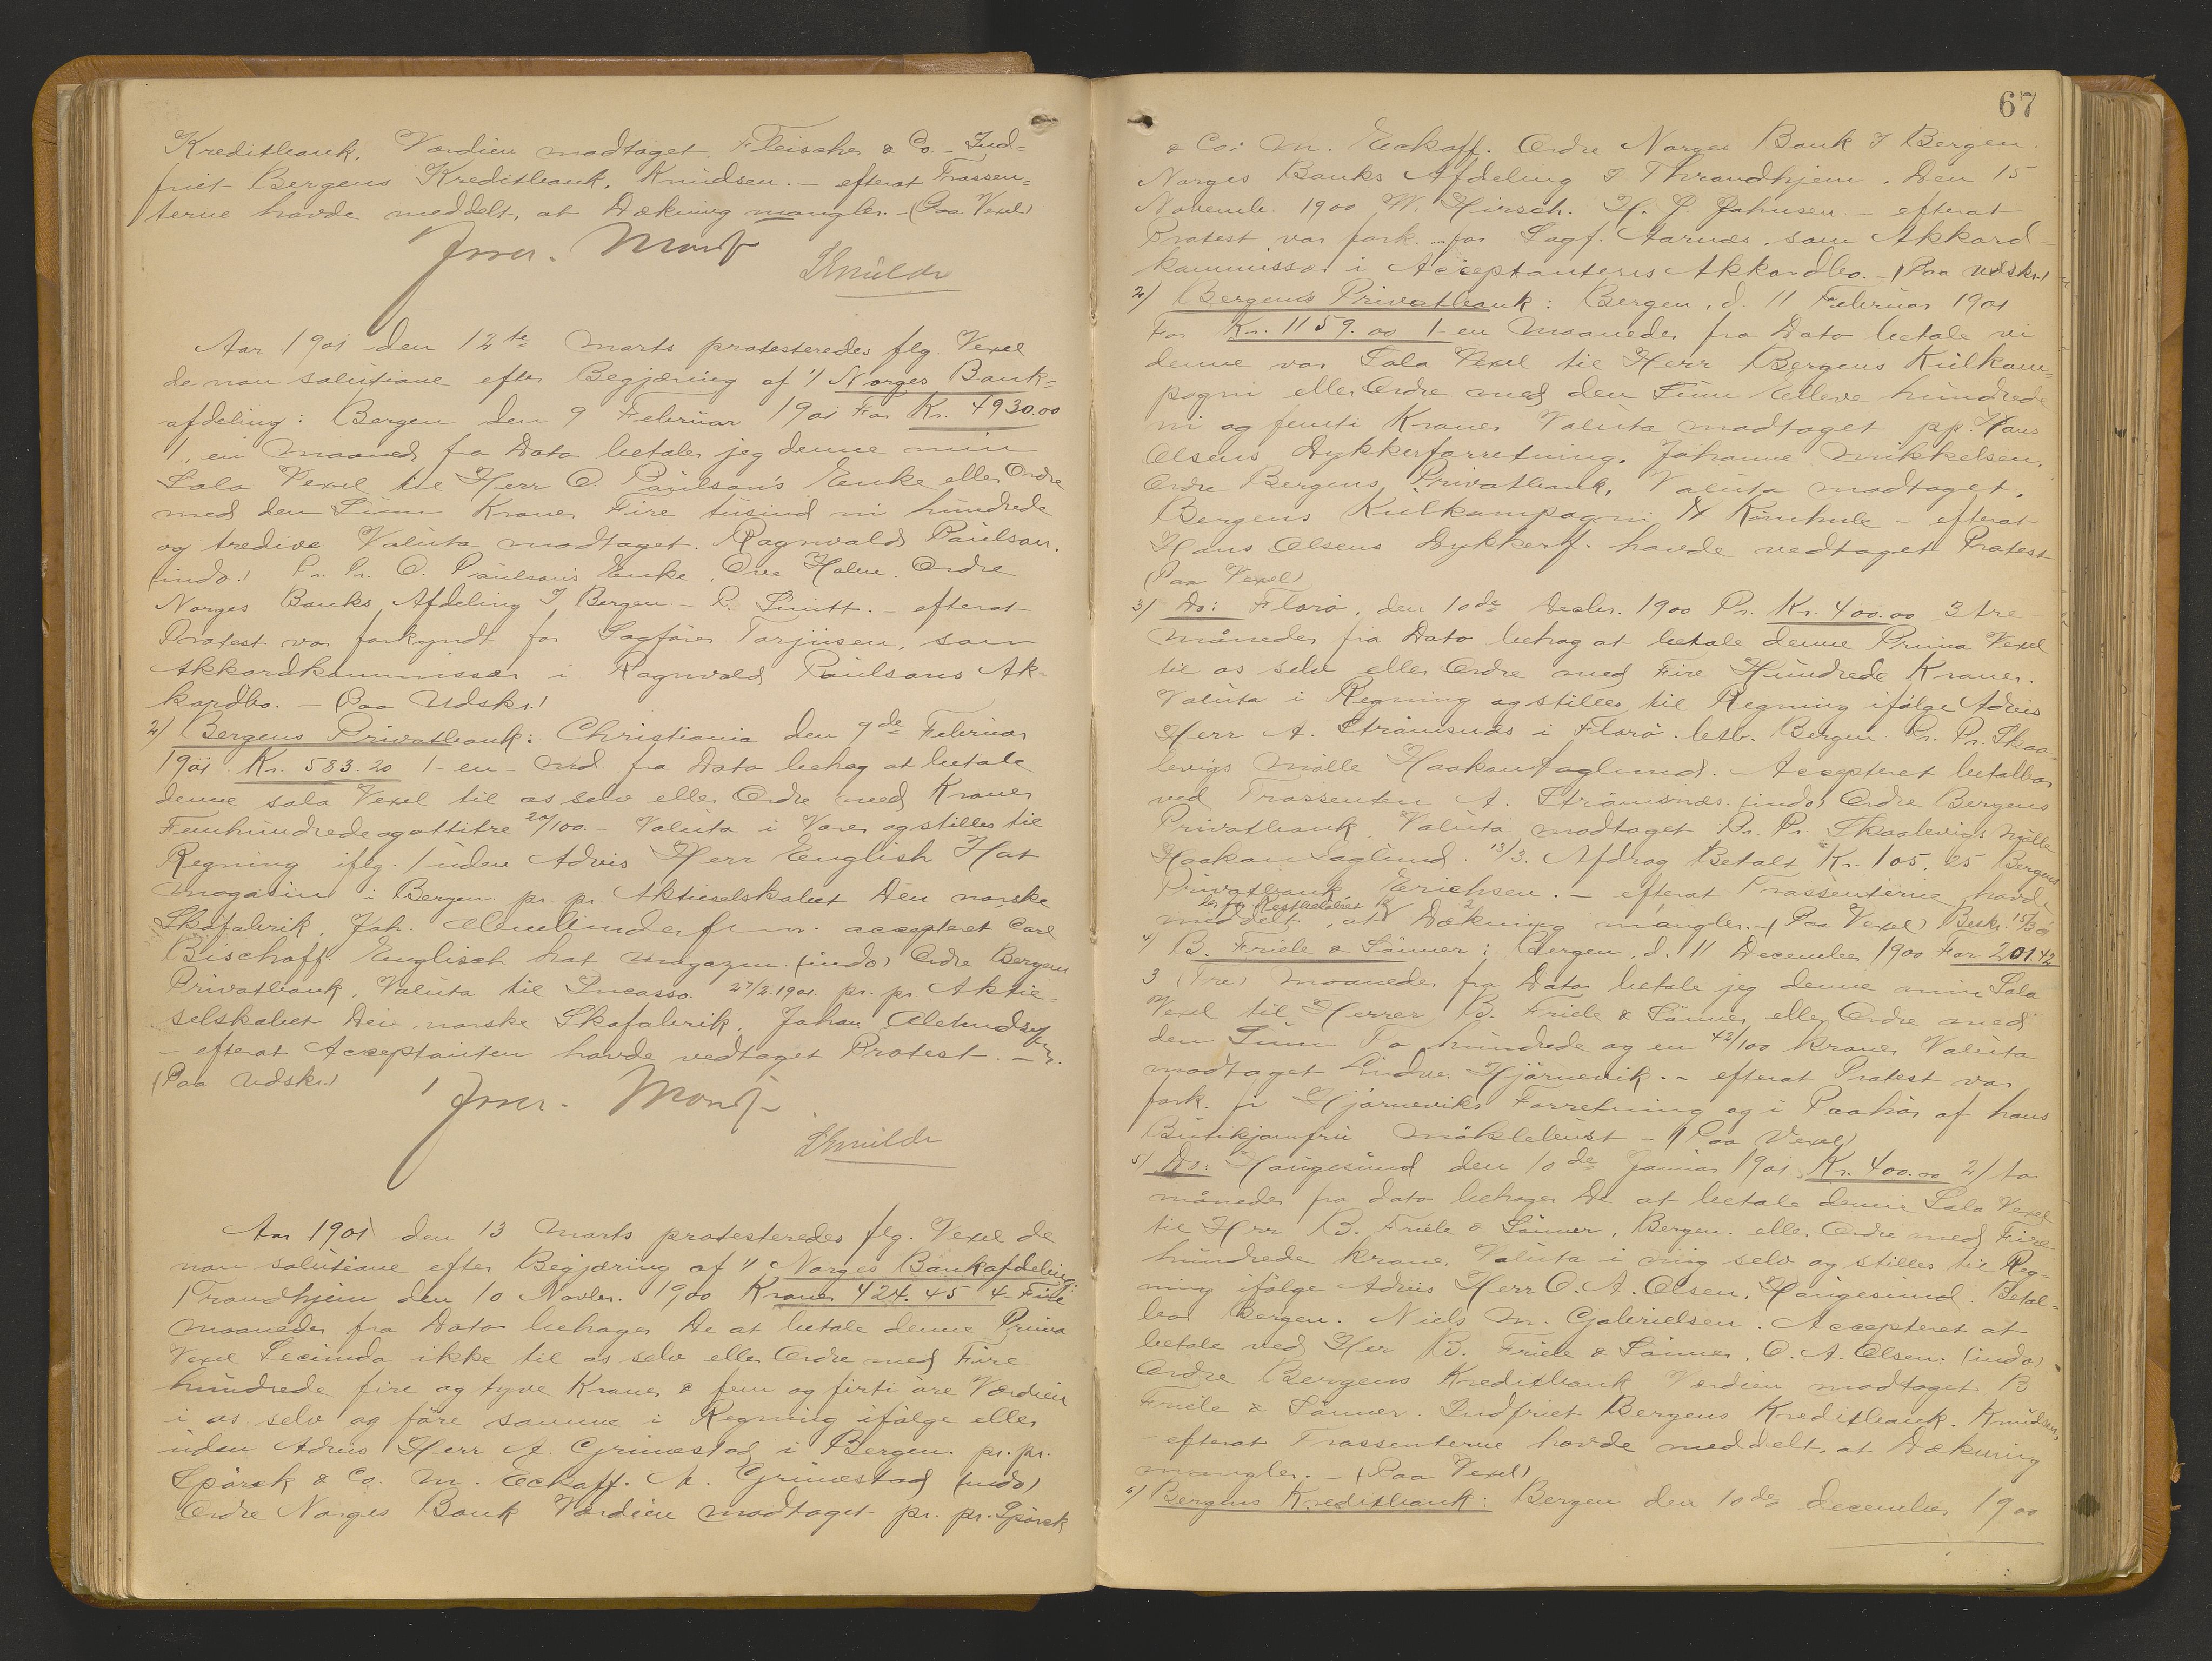 Kreditbank. Værdien modtaget. Fleischer & Co. - Ind=
friet Bergens Kreditbank. Knudsen. - efterat Trassen=
terne havde meddelt, at Dækning mangler. - (Paa Vexel)
Aar 1901 den 12te Marts protesteredes flg. Vexel
de non solutione efter Begjæring af 1/ Norges Bank=
afdeling: Bergen den 9 Februar 1901 For Kr. 4930.00
1, en Maaned fra Dato betaler jeg denne min
Sola Vexel til Herr O. Paulson's Enke eller Ordre
med den Sum Kroner Fire tusind ni hundrede
og tredive Valuta modtaget. Ragnvald Paulson.
(indo.) Pr. Pr. O. Paulson's Enke, Ove Holm. Ordre
Norges Banks Afdeling I Bergen. - P. Smitt. - efterat
Protest var forkyndt for Sagfører Torjusen, som
Akkordkommissær i Ragnvald Paulsons Ak-
kordbo. - (Paa Udskr.)
2/ Bergens Privatbank: Christiania den 9de Februar
1901. Kr. 583.20 1 - en - Md. fra Dato behag at betale
denne sola Vexel til os selv eller Ordre med Kroner
Femhundredeogottitre 20/100. - Valuta i Varer og stilles til
Regning iflg. / uden Advis Herr English Hat
Magasin i Bergen. pr. pr. Aktieselskabet Den norske
Skofabrik, Joh. accepteret Carl
Bischoff. Englisch hat Magazin. (indo) Ordre Bergens
Privatbank, Valuta til Incasso. 27/2.1901. pr. pr. Aktie=
selskabet Den norske Skofabrik, Johan
- efterat Acceptanten havde vedtaget Protest. -
(Paa Udskr.)
Aar 1901 den 13 Marts protesteredes flg. Vexel de
non solutione efter Begjæring af 1/ Norges Bankafdeling:
Trondhjem den 10 Novbr. 1900 Kroner 424.45 4 Fire
Maaneder fra Dato behager De at betale denne Prima
Vexel Secunda ikke til os selv eller Ordre med Fire
hundrede fire og tyve Kroner & fem og firti øre Værdien
i os selv og føre samme i Regning ifølge eller
uden Advis Herr A. Grimestad i Bergen. pr. pr.
Spörck & Co. M. Eckoff. A. Grimestad (indo)
Ordre Norges Bank Værdien modtaget pr. pr. Spörck
67
& Co: M. Eckoff. Ordre Norges Bank I Bergen.
Norges Banks Afdeling I Throndhjem. Den 15
Novembr. 1900 W. Hirsch. H. J. Johnsen. - efterat
Protest var fork. for Sagf. Aarnæs, som Akkord=
kommissær i Acceptantens Akkordbo. - (Paa Udskr.)
2/ Bergens Privatbank: Bergen, d. 11 Februar 1901
For Kr. 1159.00 1 - en Maaneder fra Dato betale vi
denne vor Sola Vexel til Herr Bergens Kulkom=
pagni eller Ordre med den Sum Elleve hundrede
ni og femti Kroner Valuta modtaget p.p. Hans
Olsens Dykkerforretning. Johanne Mikkelsen.
Ordre Bergens Privatbank. Valuta modtaget.
Bergens Kulkompagni - efterat
Hans Olsens Dykkerf. havde vedtaget Protest
(Paa Vexel)
3/ Do: Florø, den 10de Decbr. 1900 Pr. Kr. 400.00 3 tre
Måneder fra Dato behag at betale denne Prima Vexel
til os selv eller Ordre med Fire Hundrede Kroner.
Valuta i Regning og stilles til Regning ifølge Advis
Herr A. Strömsnæs i Florø. betb. Bergen. Pr. Pr. Skaa-
levigs Mølle Haakon Faglund. Accepteret betalbar
ved Trassenten A. Strömsnæs. (indo) Ordre Bergens
Privatbank, Valuta modtaget Pr. Pr. Skaalevigs Mølle
Haakon Faglund. 13/3. Afdrag Betalt Kr. 105.25 Bergens
Privatbank. Erichsen. - efterat Trassenterne havde
for Restbeløbet
meddelt, at Dækning mangler. - (Paa Vexel)
4/ B. Friele & Sønner: Bergen, d. 11 December 1900 For 201.42
3 (Tre) Maaneder fra Dato betale jeg denne min Sola
Vexel til Herrer B. Friele & Sønner eller Ordre med
den Sum To hundrede og en 42/100 kroner Valuta
modtaget Endre Hjørnevik. - efterat Protest var
fork. i Hjørneviks Forretning og i Paahør af hans
Butikjomfru Møklebust - (Paa Vexel)
5/ Do: Haugesund den 10de Januar 1901, Kr. 400.00 2/ to
måneder fra dato behager De at betale denne Sola Vexel
til Hrr B. Friele & Sønner, Bergen. eller Ordre med Fire
hundrede kroner. Valuta i mig selv og stilles til Reg-
ning ifølge Advis Herr O. A. Olsen, Haugesund. Betal=
bar Bergen. Niels M. Gabrielsen. Accepteret at
betale ved Her B. Friele & Sønner. O. A. Olsen. (indo)
Ordre Bergens Kreditbank Værdien modtaget B
Friele & Sønner. Indfriet Bergens Kreditbank. Knudsen,
- efterat Trassenterne havde meddelt, at Dækning
mangler. - (Paa Vexel)
6/ Bergens Kreditbank: Bergen den 10de december 1900